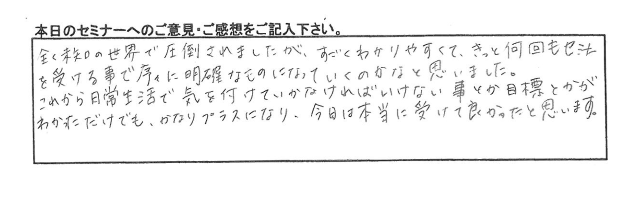 本日のセミナーへのご意見・ご感想をご記入下さい。
全く未知の世界で圧倒されましたが、すごくわかりやすくて、きっと何回もセミナー
を受ける事で序々に明確なものになっていくのかなと思いました。
これから日常生活で気を付けていかなければいけない事とか目標とかが
わかっただけでも、かなりプラスになり、今日は本当に受けて良かったと思います。